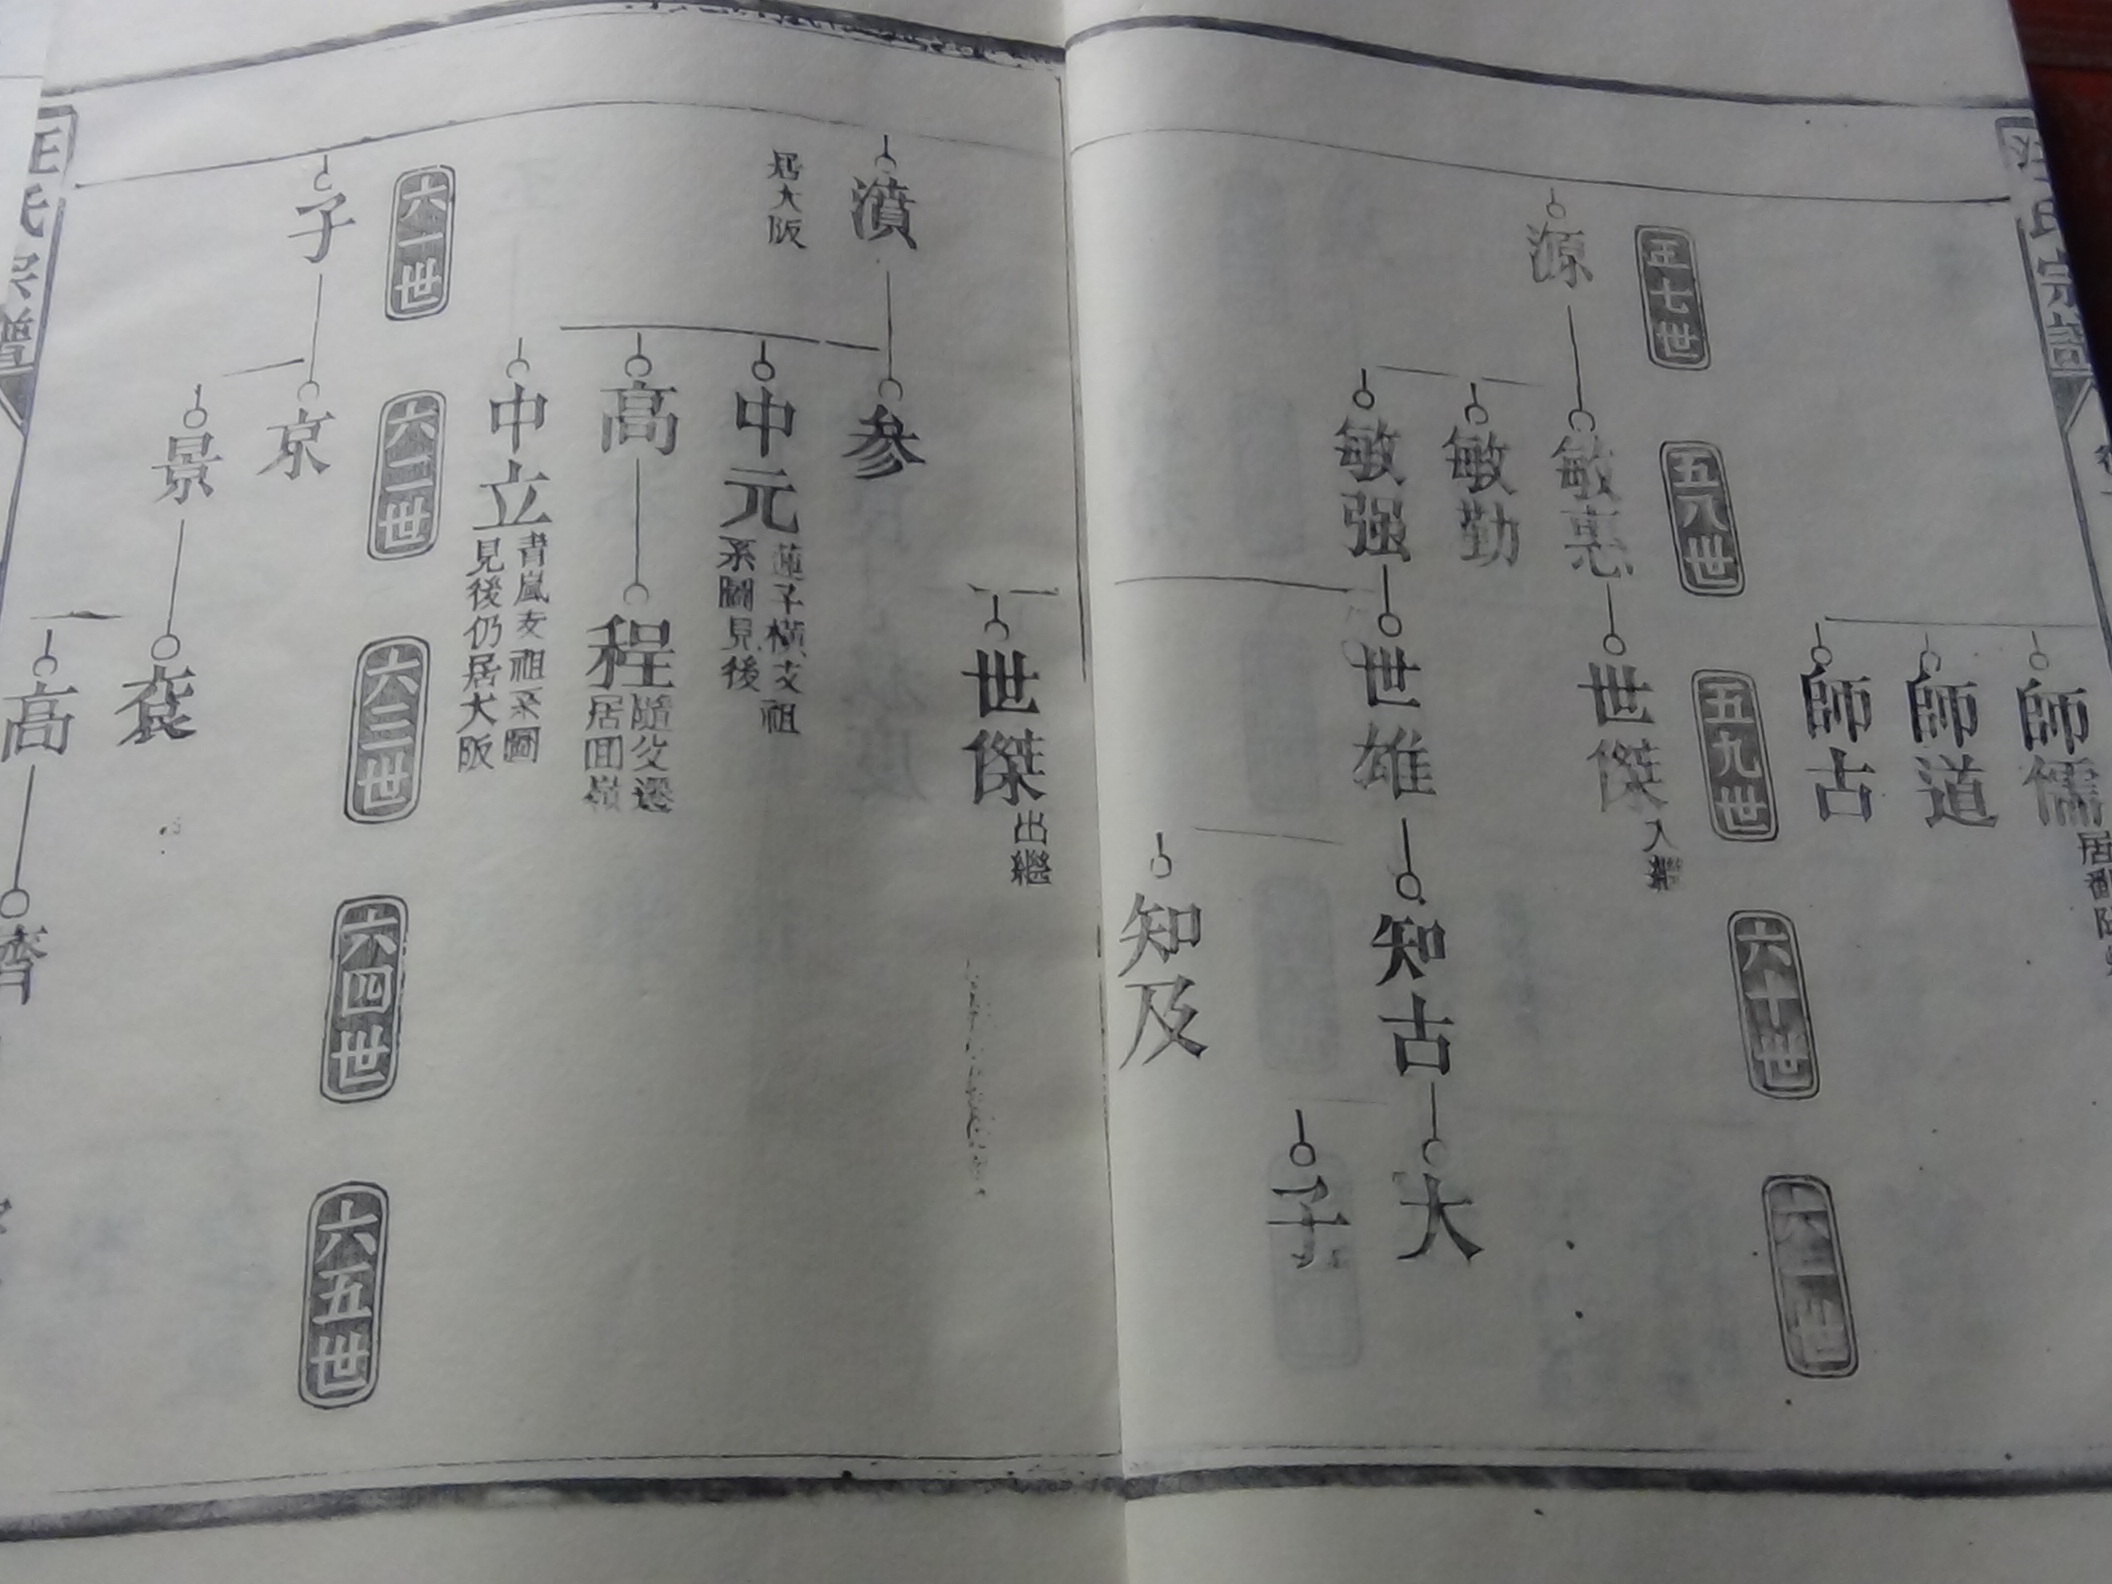 汪氏宗譜
師儒
師道
師古
五七世
五八世
五九世
六十世
六一世
源
敏惠
世傑
入繼
敏勤
敏强
世雄
知古
大
子
知及
世傑
出繼
濆
居大阪
参
中元
蓮子橫支祖
系圖見後
高
程
隨父遷
居回嶺
中立
青嵐支祖系圖
見後仍居大阪
六一世
六二世
六三世
六四世
六五世
子
京
景
袞
高
齊
汪氏宗譜